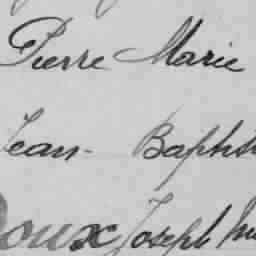 Pierre Marie
Jean- Baptis
Doux Joseph